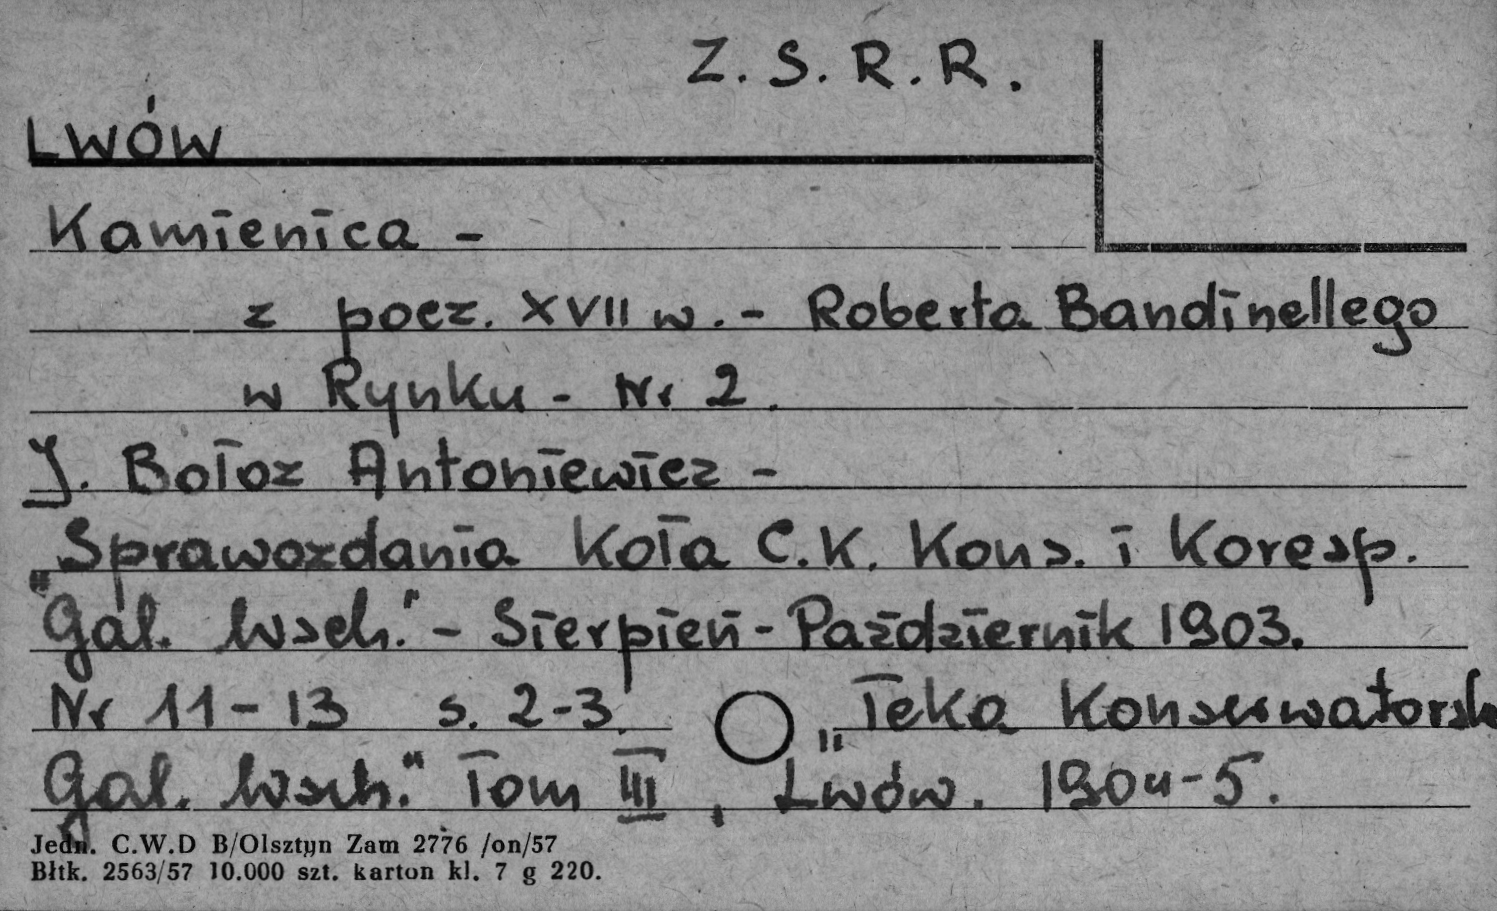 Z. S. R. R.
LWÓW
Kamienica -
z pocz. XVII w. - Roberta Bandinellego
w Rynku - Nr 2.
J. Bołoz Antoniewicz -
„Sprawozdania Koła C.K. Kons. i Koresp.
Gal. Wsch." - Sierpień - Październik 1903.
Nr 11-13 s. 2-3. „Teka Konserwatorsk
Gal. Wsch." Tom III, Lwów. 1904-5.
Jedn. C.W.D B/Olsztyn Zam 2776 /on/57
Błtk. 2563/57 10.000 szt. karton kl. 7 g 220.